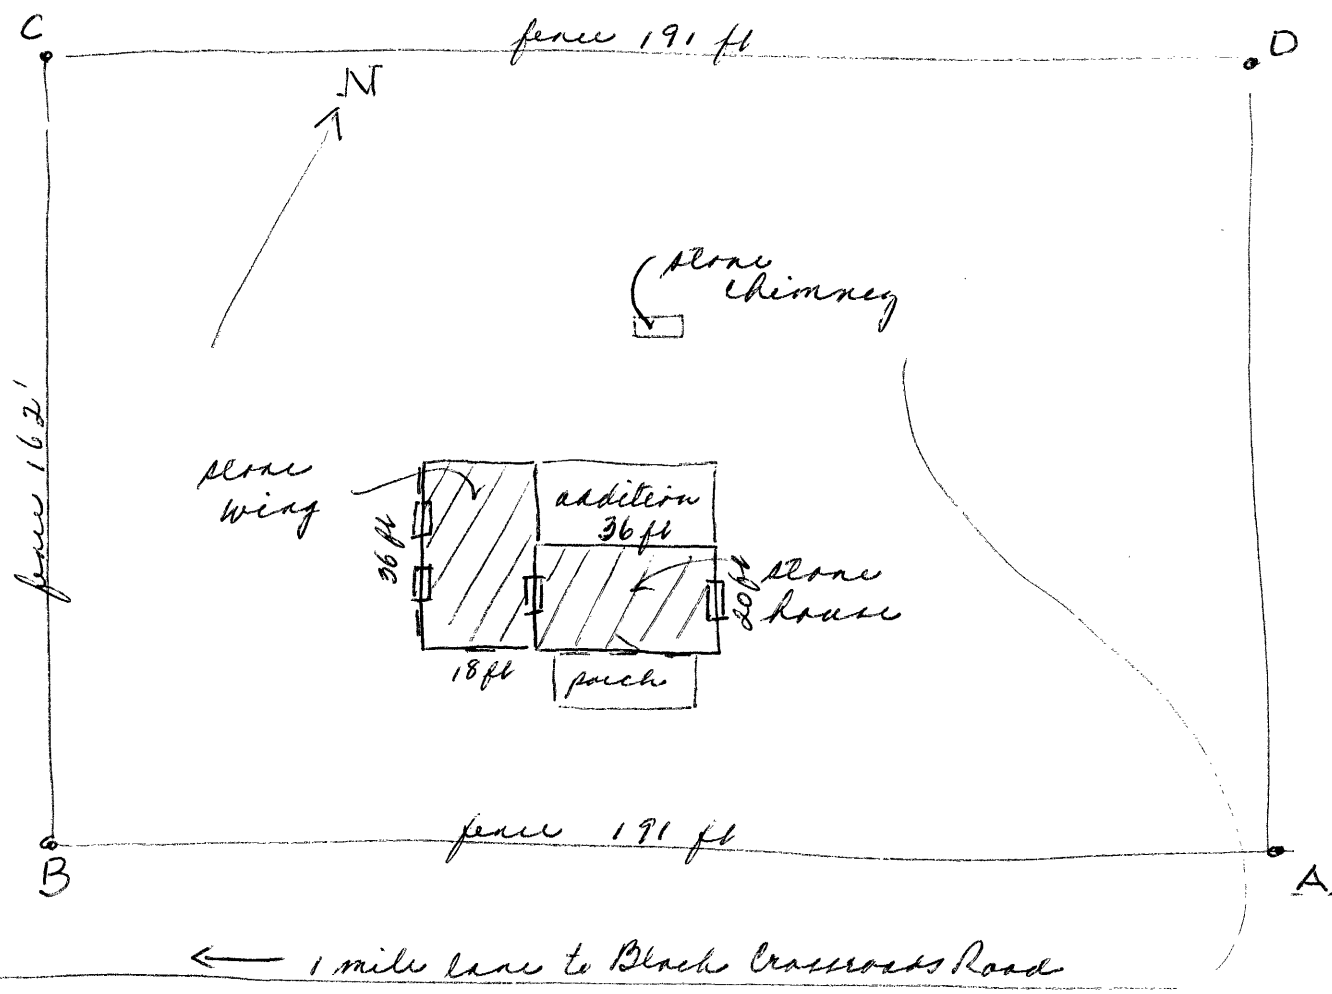 C
fence 191 ft
D
N
stone
chimney
fence 162'
stone
wing
addition
36 ft
36 ft
stone
house
20 ft
18 ft
porch
fence 191 ft
B
A
← 1 mile lane to Black Crossroads Road